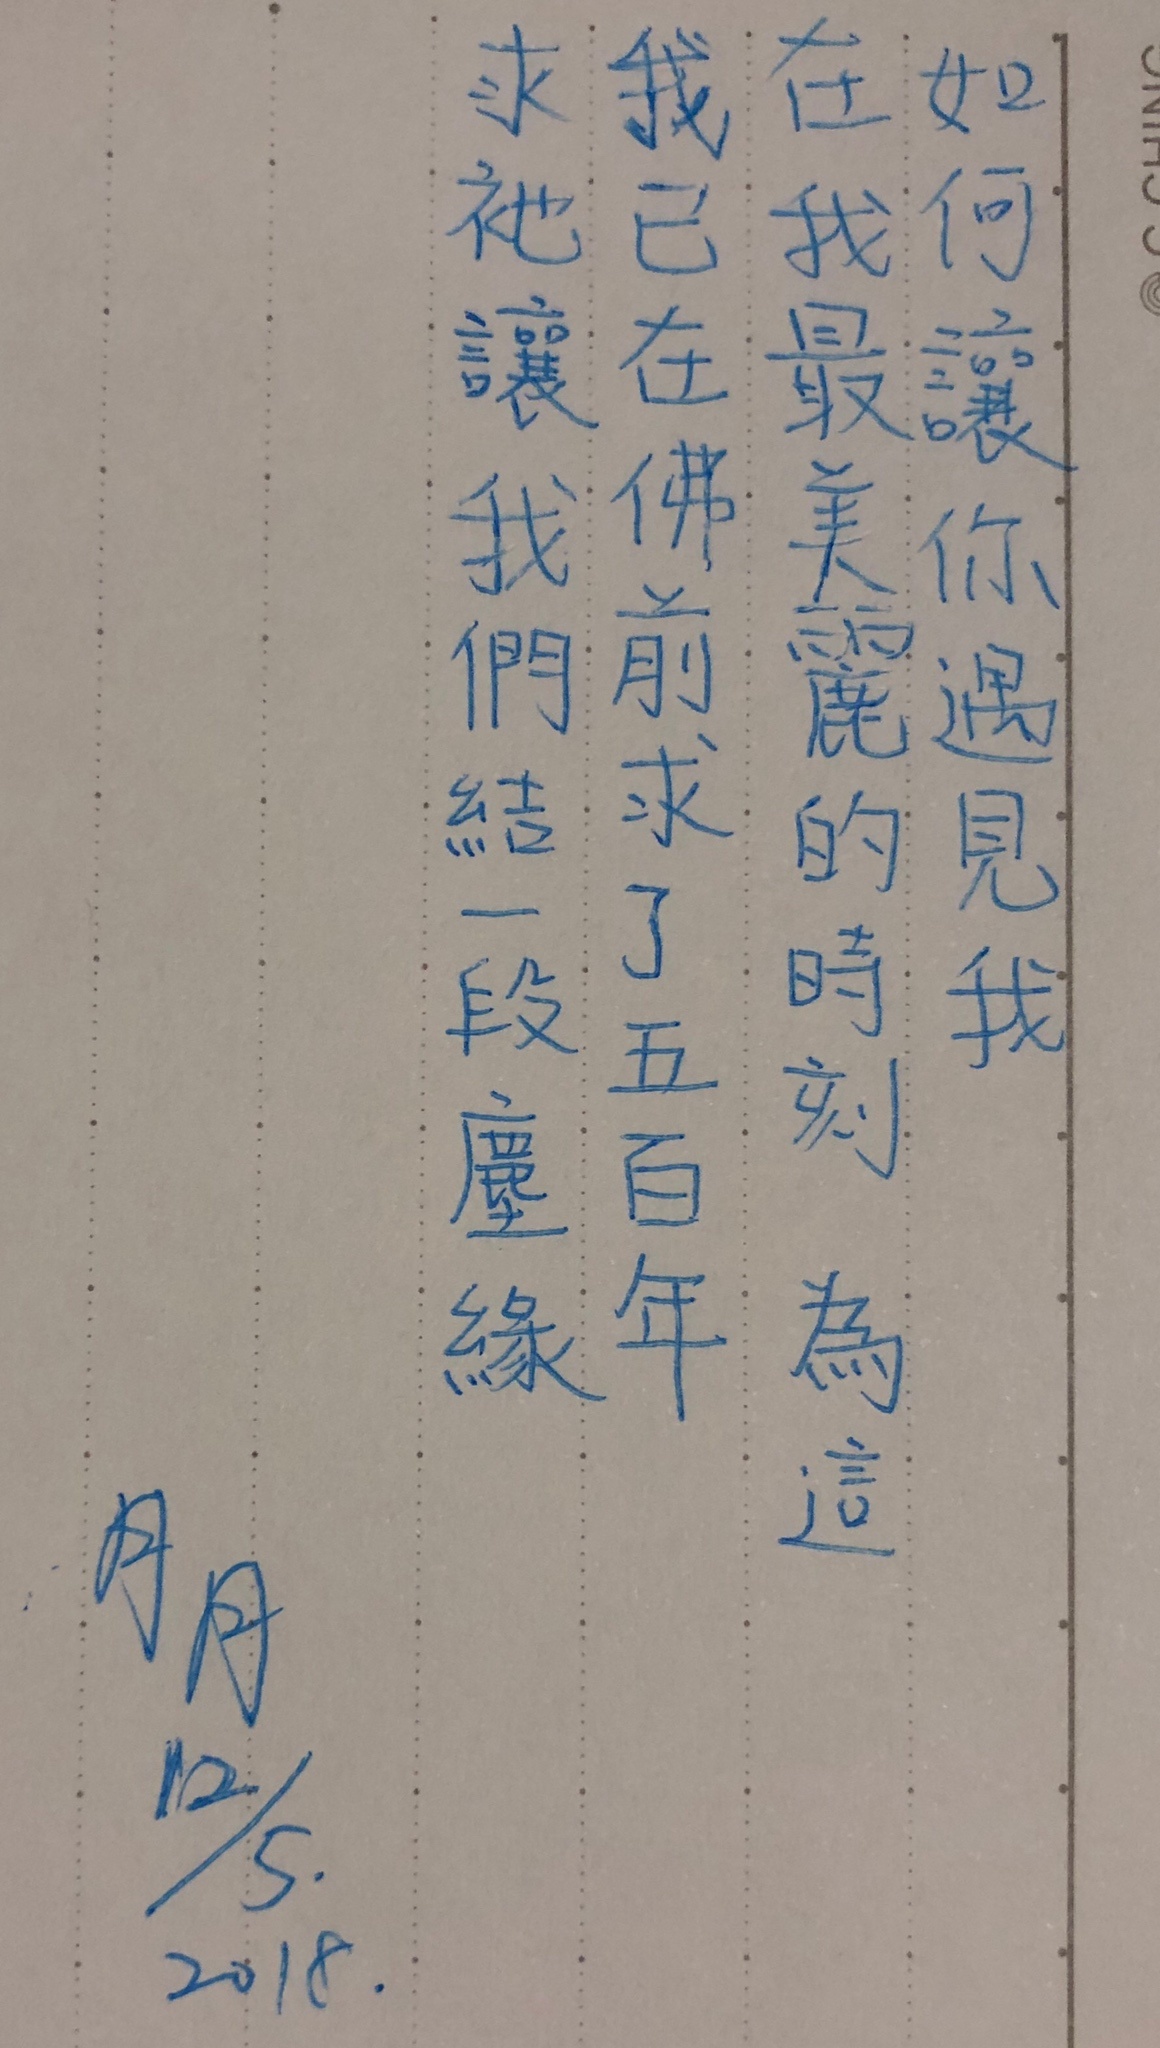 如何讓你遇見我
在我最美麗的時刻 為這
我已在佛前求了五百年
求祂讓我們結一段塵緣
月月
12/5.
2018.